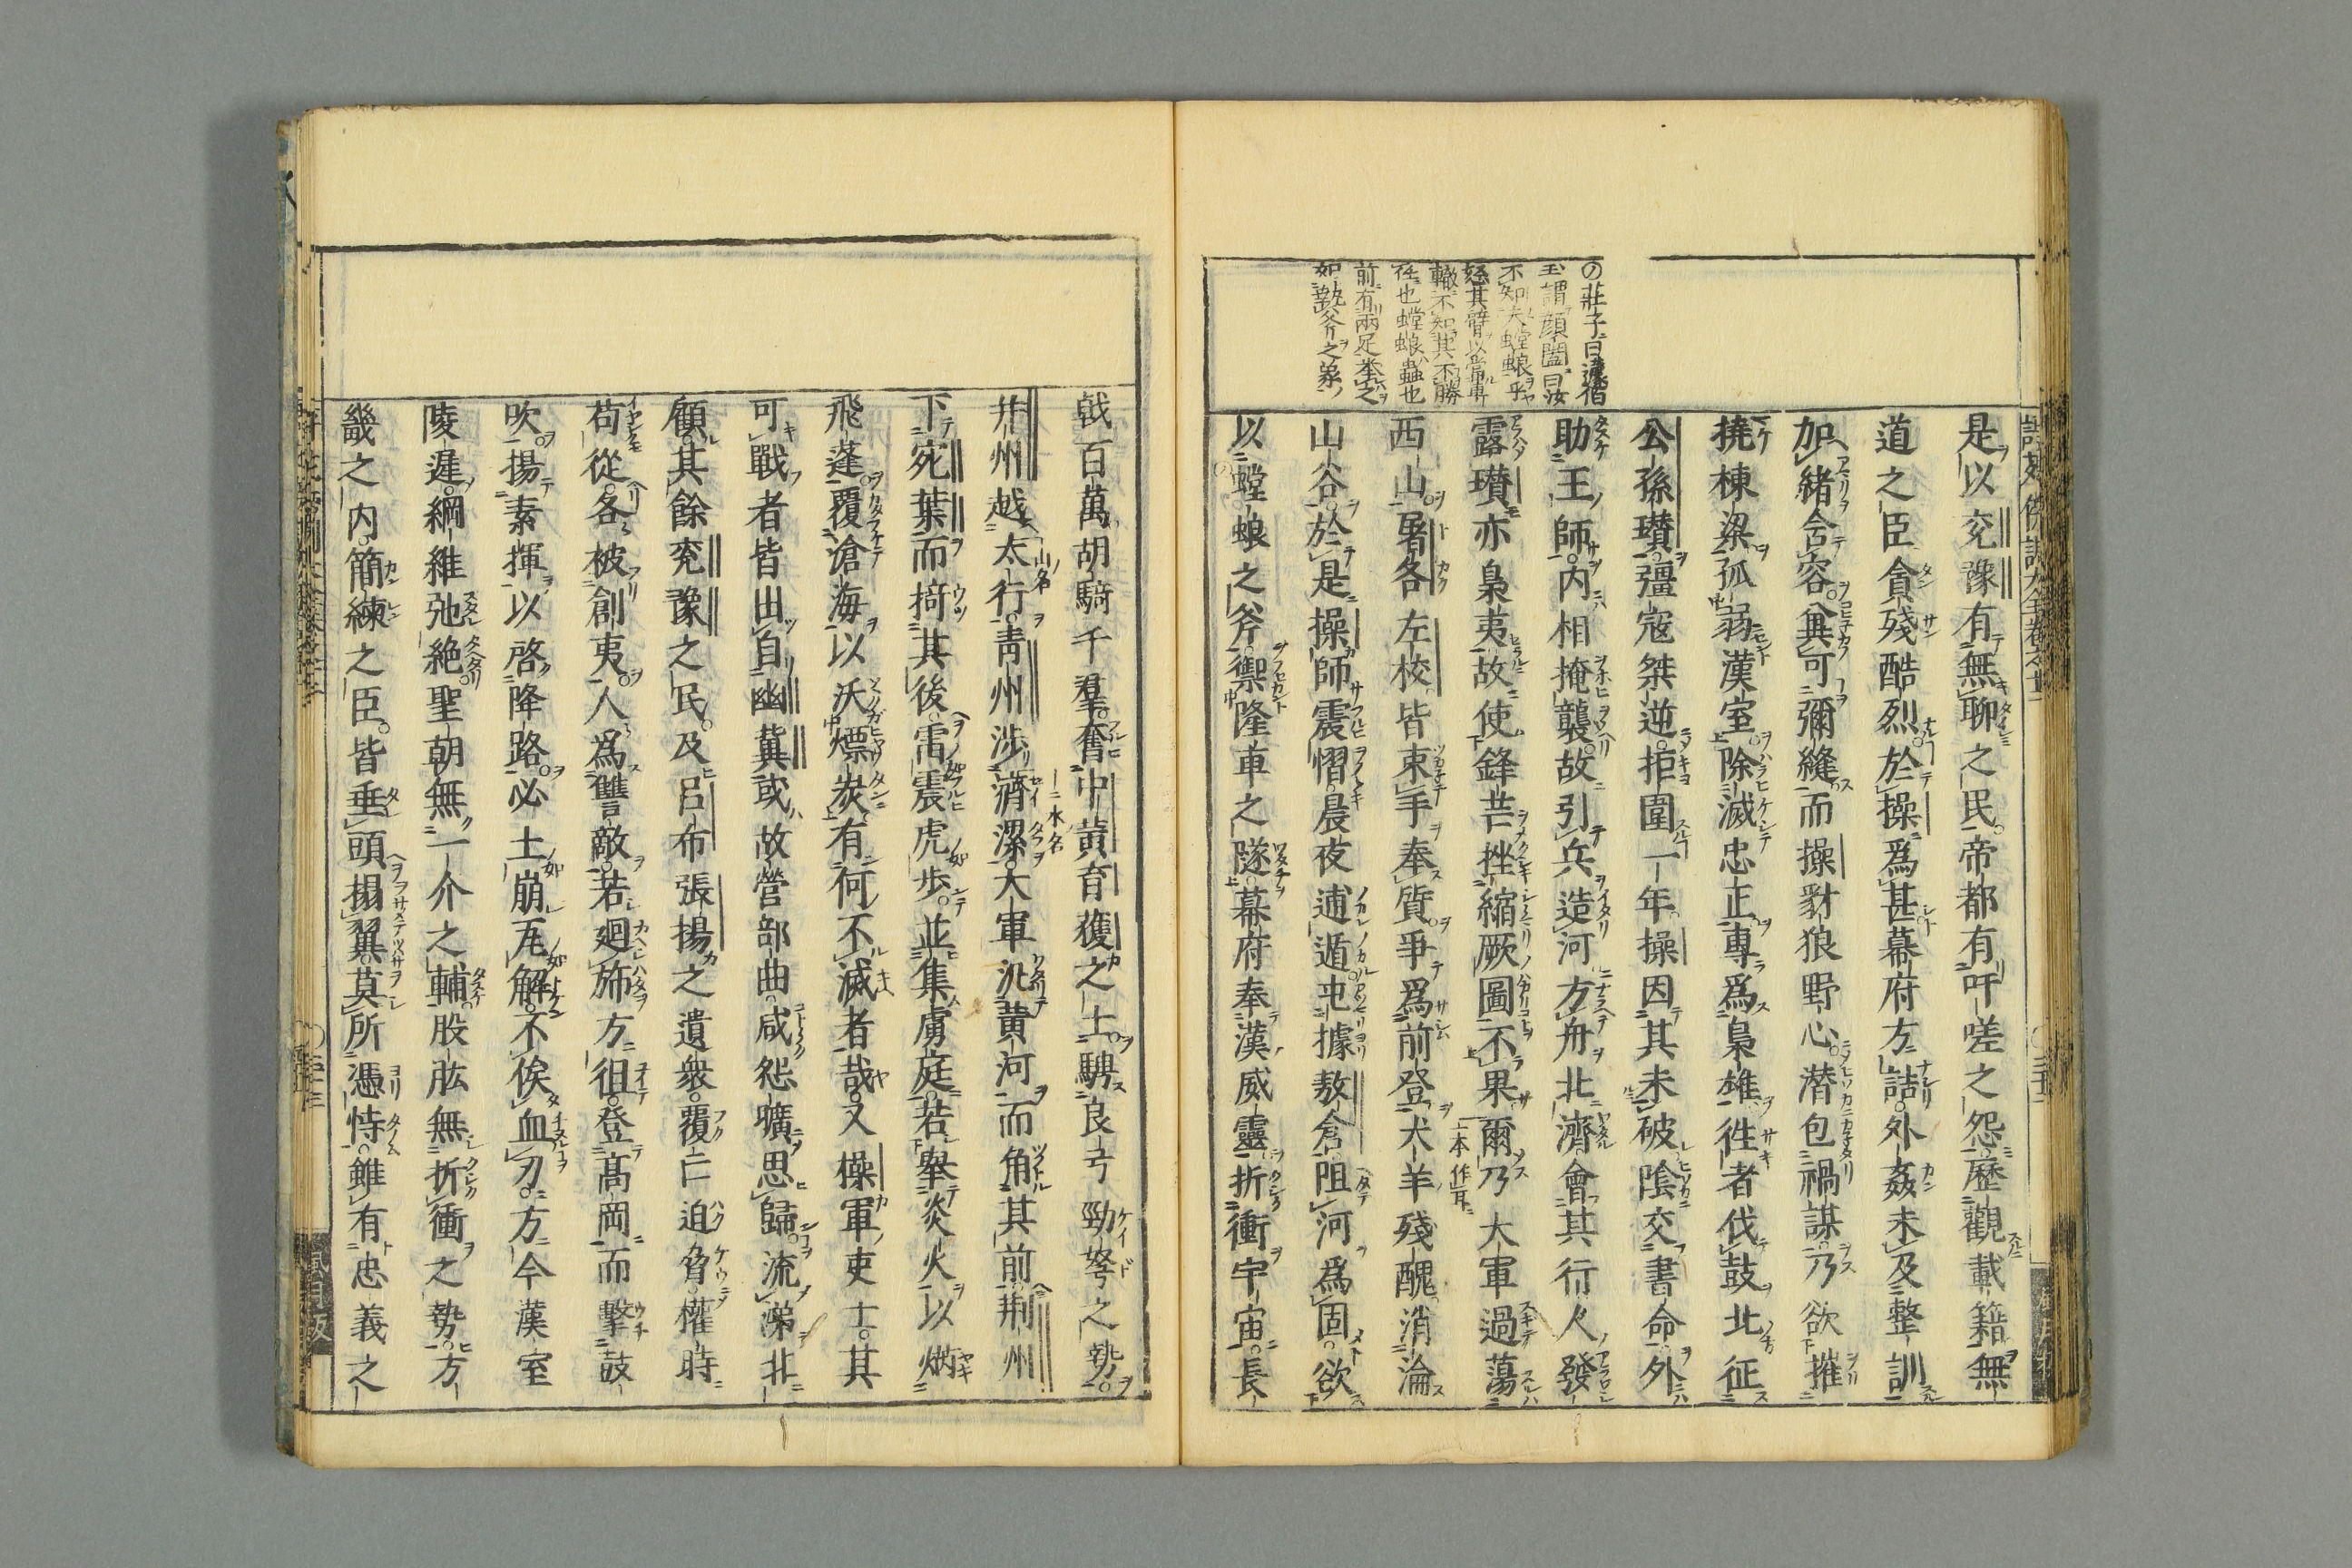 の莊子曰蘧伯
玉謂顔闔曰汝
不知夫螳蜋乎
怒其臂以當車
轍不知其不勝
任也螳蜋蟲也
前有兩足挙之
如執斧之象
是以兗豫有無聊之民帝都有吁嗟之怨歴觀載籍無
道之臣貪殘酷烈於操爲甚幕府方詰外姦未及整訓
加緒含容兾可彌縫而操豺狼野心潜包禍謀乃欲摧
撓棟梁孤弱漢室除滅忠正專爲梟雄徃者伐鼓北征
公孫瓚彊寇桀逆拒圍一年操因其未破隂交書命外
助王師内相掩襲故引兵造河方舟北濟會其行人發
露瓚亦梟夷故使鋒芒挫縮厥圖不果爾乃大軍過蕩
一本作耳
西山屠各左校皆束手奉質爭爲前登犬羊殘醜消淪
山谷於是操師震慴晨夜逋遁屯據敖倉阻河爲固欲
以螳蜋之斧禦隆車之隧幕府奉漢威靈折衝宇宙長
戟百萬胡騎千羣奮中黄育獲之士騁良弓勁弩之勢
并州越太行青州涉濟漯大軍汎黄河而角其前荆州
山名
水名
下宛葉而掎其後雷震虎歩並集虜庭若擧炎火以焫
飛蓬覆滄海以沃熛炭有何不滅者哉又操軍吏士其
可戰者皆出自幽冀或故營部曲咸怨曠思歸流涕北
顧其餘兖豫之民及呂布張揚之遺衆覆亡迫脅權時
苟從各被創夷人爲讐敵若廻斾方徂登髙岡而擊鼓
吹揚素揮以啓降路必土崩瓦解不俟血刃方今漢室
陵遲綱維弛絶聖朝無一介之輔股肱無折衝之勢方
畿之内簡練之臣皆垂頭搨翼莫所憑恃雖有忠義之